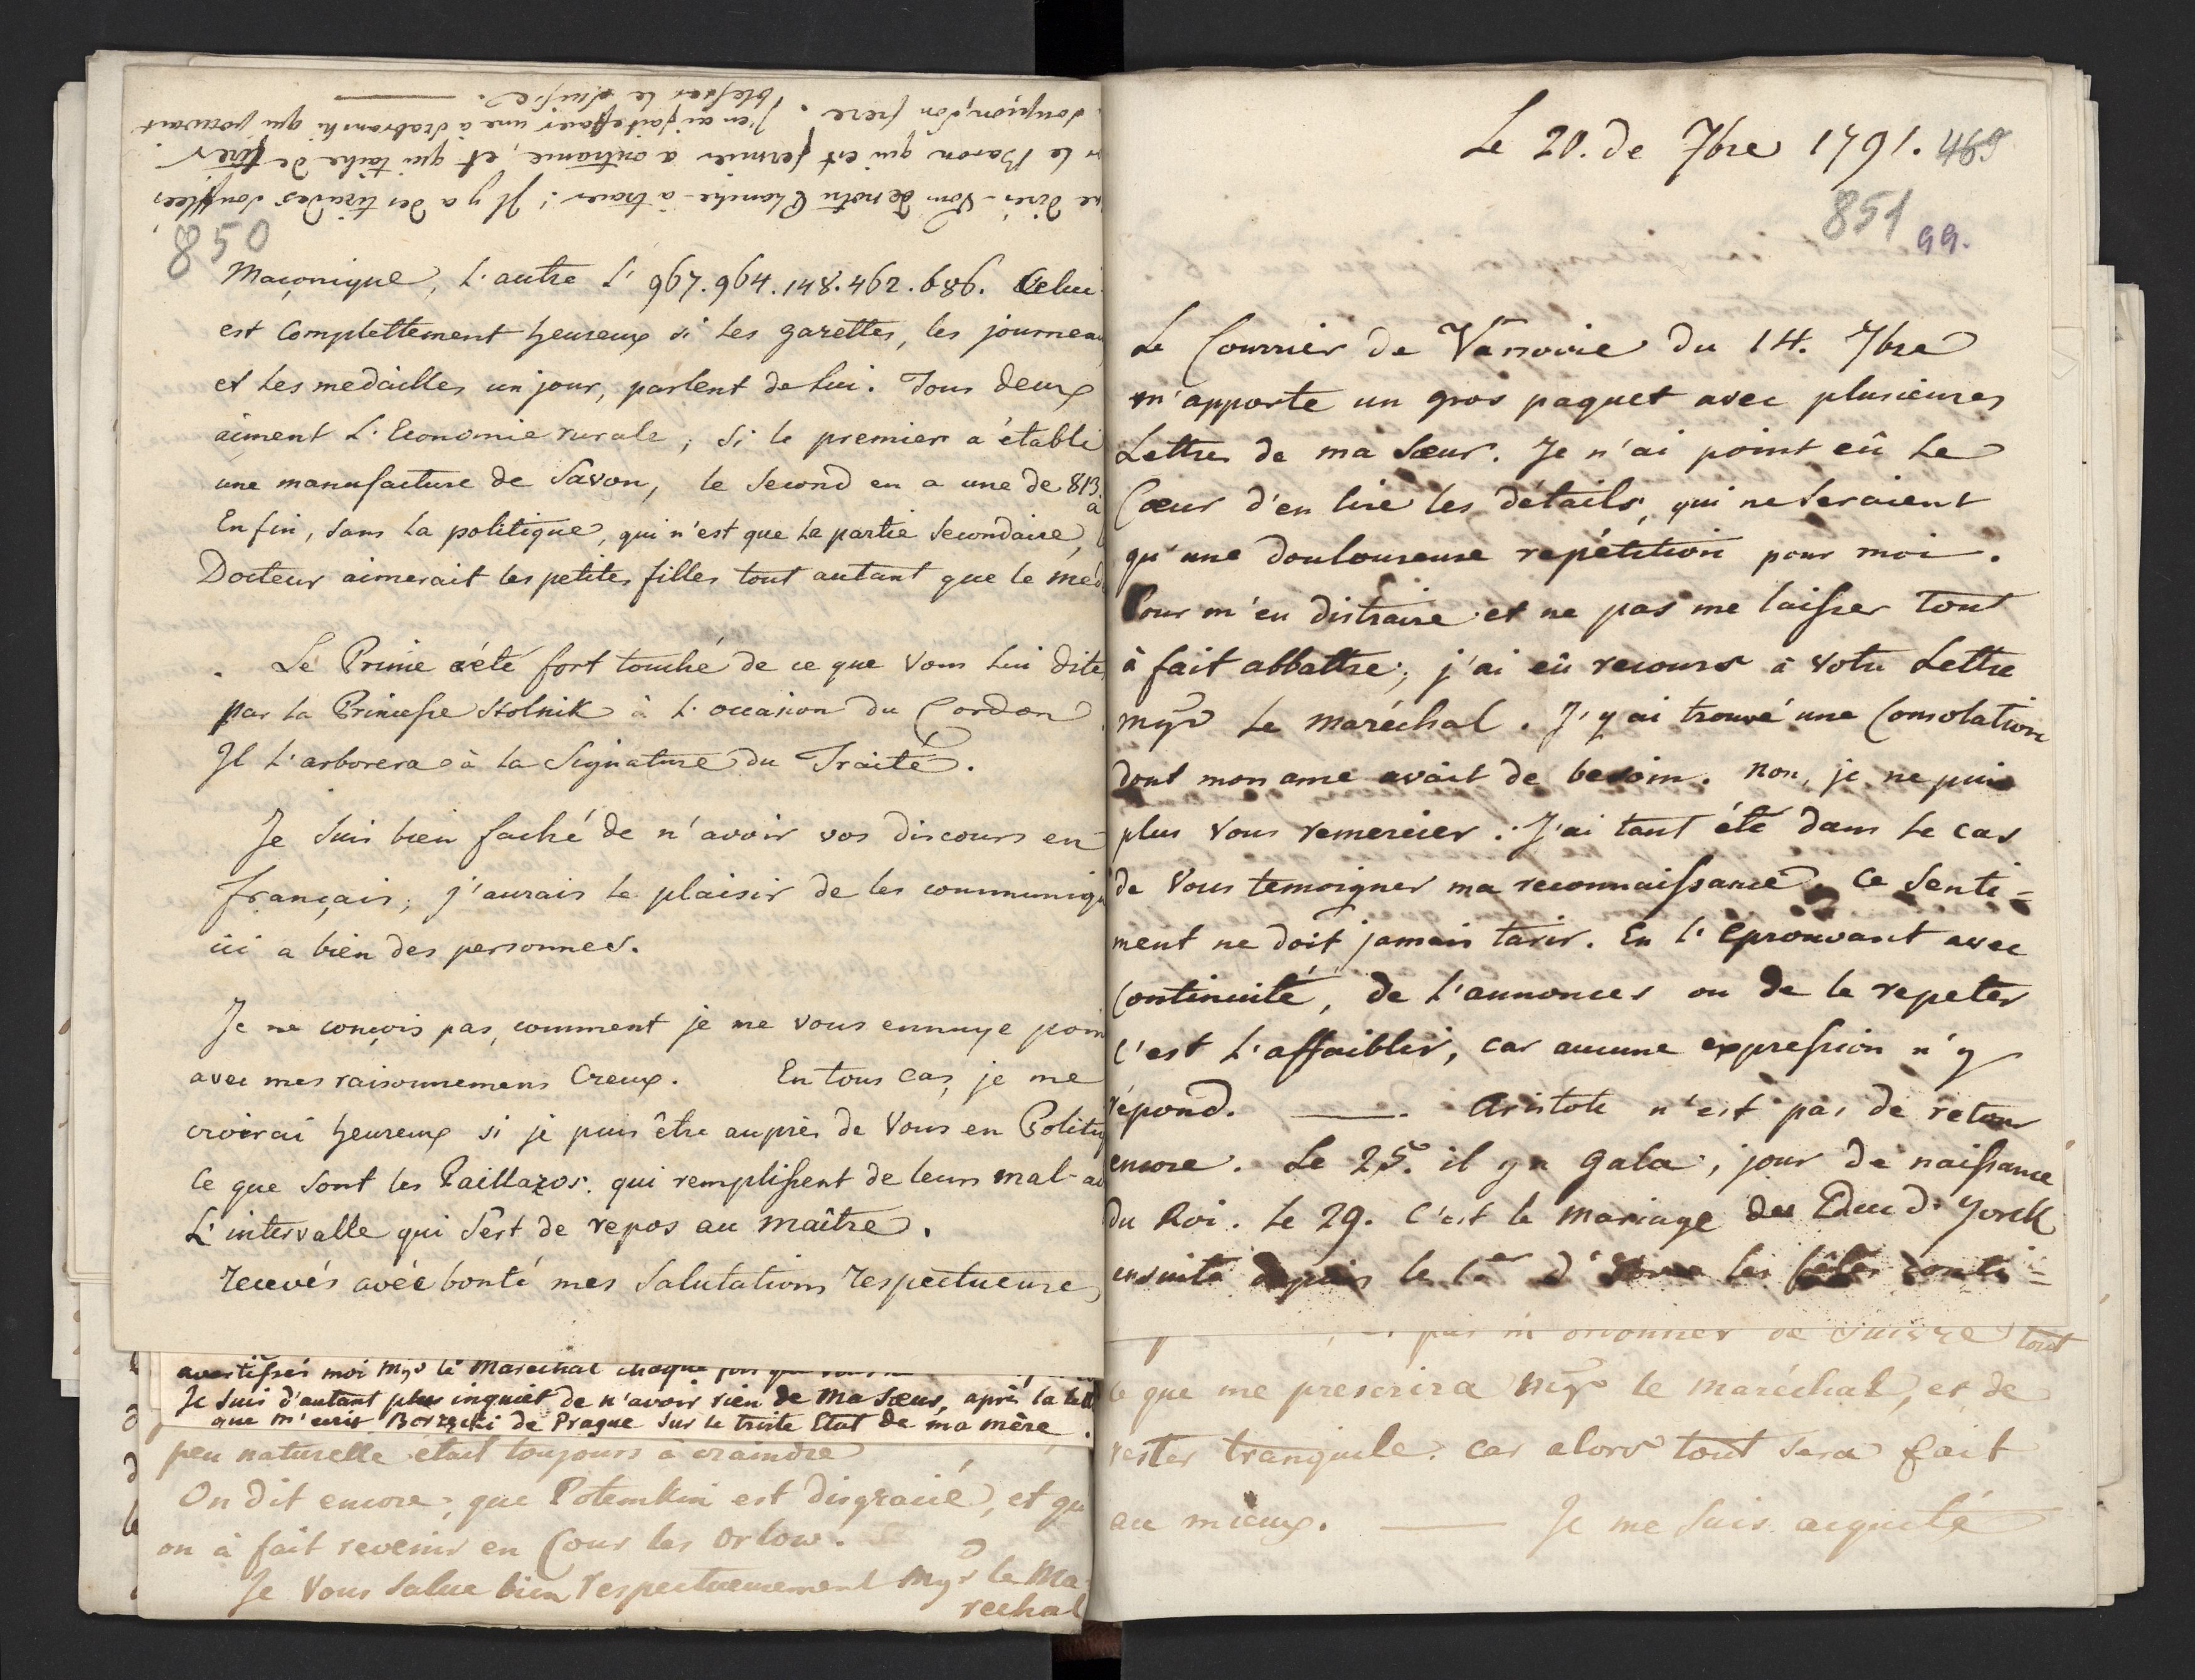 ne dirés-Vous de notre Chanise-à-traver! Il y a des tirades soufflées
le Baron qui est fermier à outrance, et qui tache de tirer
soupçon son frere. J'en ai fait effacer une à Drabranki qui pouvait
blesser le Suisse.
850
Maçonique, l'autre l' 967.964.148.462.686. Celui
est complettement heureux si les gazettes, les journeau
et les medailles un jour, parlent de lui. Tous deux
aiment l'Economie rurale; Si le premier a établi
une manufacture de Savon, le Second en a une de 813.
a
Enfin, sans la politique, qui n'est que la partie Secondaire,
Docteur aimerait les petites filles tout autant que le méd
Le Prince a été fort touché de ce que Vous lui dite
par la Princesse Stolnik à l'occasion du Cordon
Il l'arborera à la Signature du Traité.
Je Suis bien faché de n'avoir vos discours en
français; j'aurais le plaisir de les communiqu
ici a bien des personnes.
Je ne conçois pas, comment je ne vous ennuye poin
avec mes raisonnemens Creux. En tous cas, je me
croirai heureux si je puis être auprès de Vous en Politiq
Ce que Sont les Paillazos qui remplissent de leurs mal-a
L'intervalle qui Sert de repos au Maître.
recevés avéc bonté mes Salutations respectueuse
avertissés moi Mgr le Marechal chaque fois que
Je Suis d'autant plus inquiet de n'avoir rien de Ma Sœur, après la lett
que m'ecrit Borzęcki de Prague Sur le triste Etat de ma mère.
peu naturelle était toujours à craindre
On dit encore, que Potemkin est disgracié, et qu
on à fait revenir en Cour les Orlow.
Je Vous Salue bien respectueusement Mgr le Ma-
rechal
Le 20. de 7bre 1791. 469
851
99.
Le Courrier de Varsovie du 14. 7bre
m'apporte un gros paquet avec plusieures
Lettres de ma Sœur. Je n'ai point eû le
Cœur d'en lire les détails, qui ne Seraient
qu'une douloureuse repétition pour moi.
Pour m'en distraire et ne pas me laisser tout
à fait abbattre; j'ai eû recours à votre Lettre
Mgr le Maréchal. J'y ai trouvé une Consolation
dont mon ame avait de besoin. Non, je ne puis
plus Vous remercier. J'ai tant été dans le cas
de Vous temoigner ma reconnaissance. Ce Senti=
ment ne doit jamais tarir. En l'éprouvant avec
Continuité, de l'annoncer ou de le repeter
C'est l'affaiblir, car aucune expression n'y
répond. —— Aristote n'est pas de retour
encore. Le 25. il y a Gala, jour de naissance
du Roi. Le 29. C'est le Mariage du Duc d'Yorck
ensuite depuis le 1er d' les fêtes conti=
pas m'ordonner de suivre tout
ce que me prescrira Mgr le Maréchal, et de
rester tranquile. Car alors tout Sera fait
au mieux. —— Je me Suis aquité